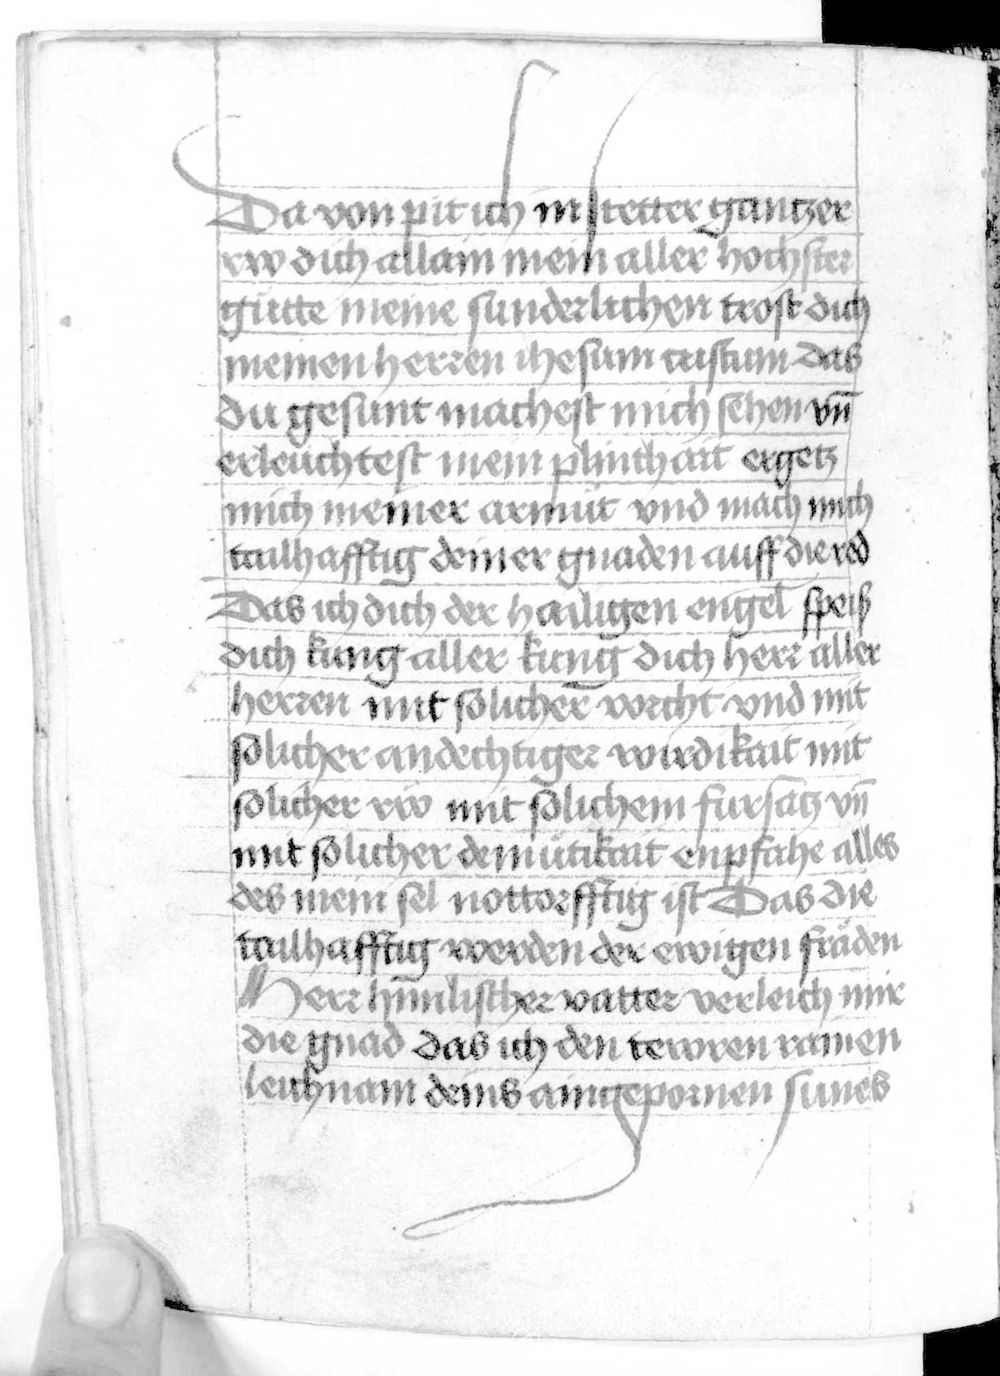 Da von pit ich in stetter gantzer
rw dich allain mein aller hochster
gütte meine sunderlichen trost dich
meinen herren ihesum cristum das
du gesunt machest mich sehen vn̄
erleuchtest mein plinthait ergetz
mich meiner armüt vnd mach mich
tailhafftig deiner gnaden auff die red
Das ich dich der hailigen engel speiß
dich kung aller kung dich herr aller
herren mit solicher vorcht vnd mit
solicher andechtiger wirdikait mit
solicher rw mit solichem fursatz vn̄
mit solicher demütikait enpfahe alles
des mein sel nottorfftig ist Das die
tailhafftig werden der ewigen fräden
Herr himlischer vatter verleich mir
die gnad das ich den tewren rainen
leichnam deins aingepornen sunes